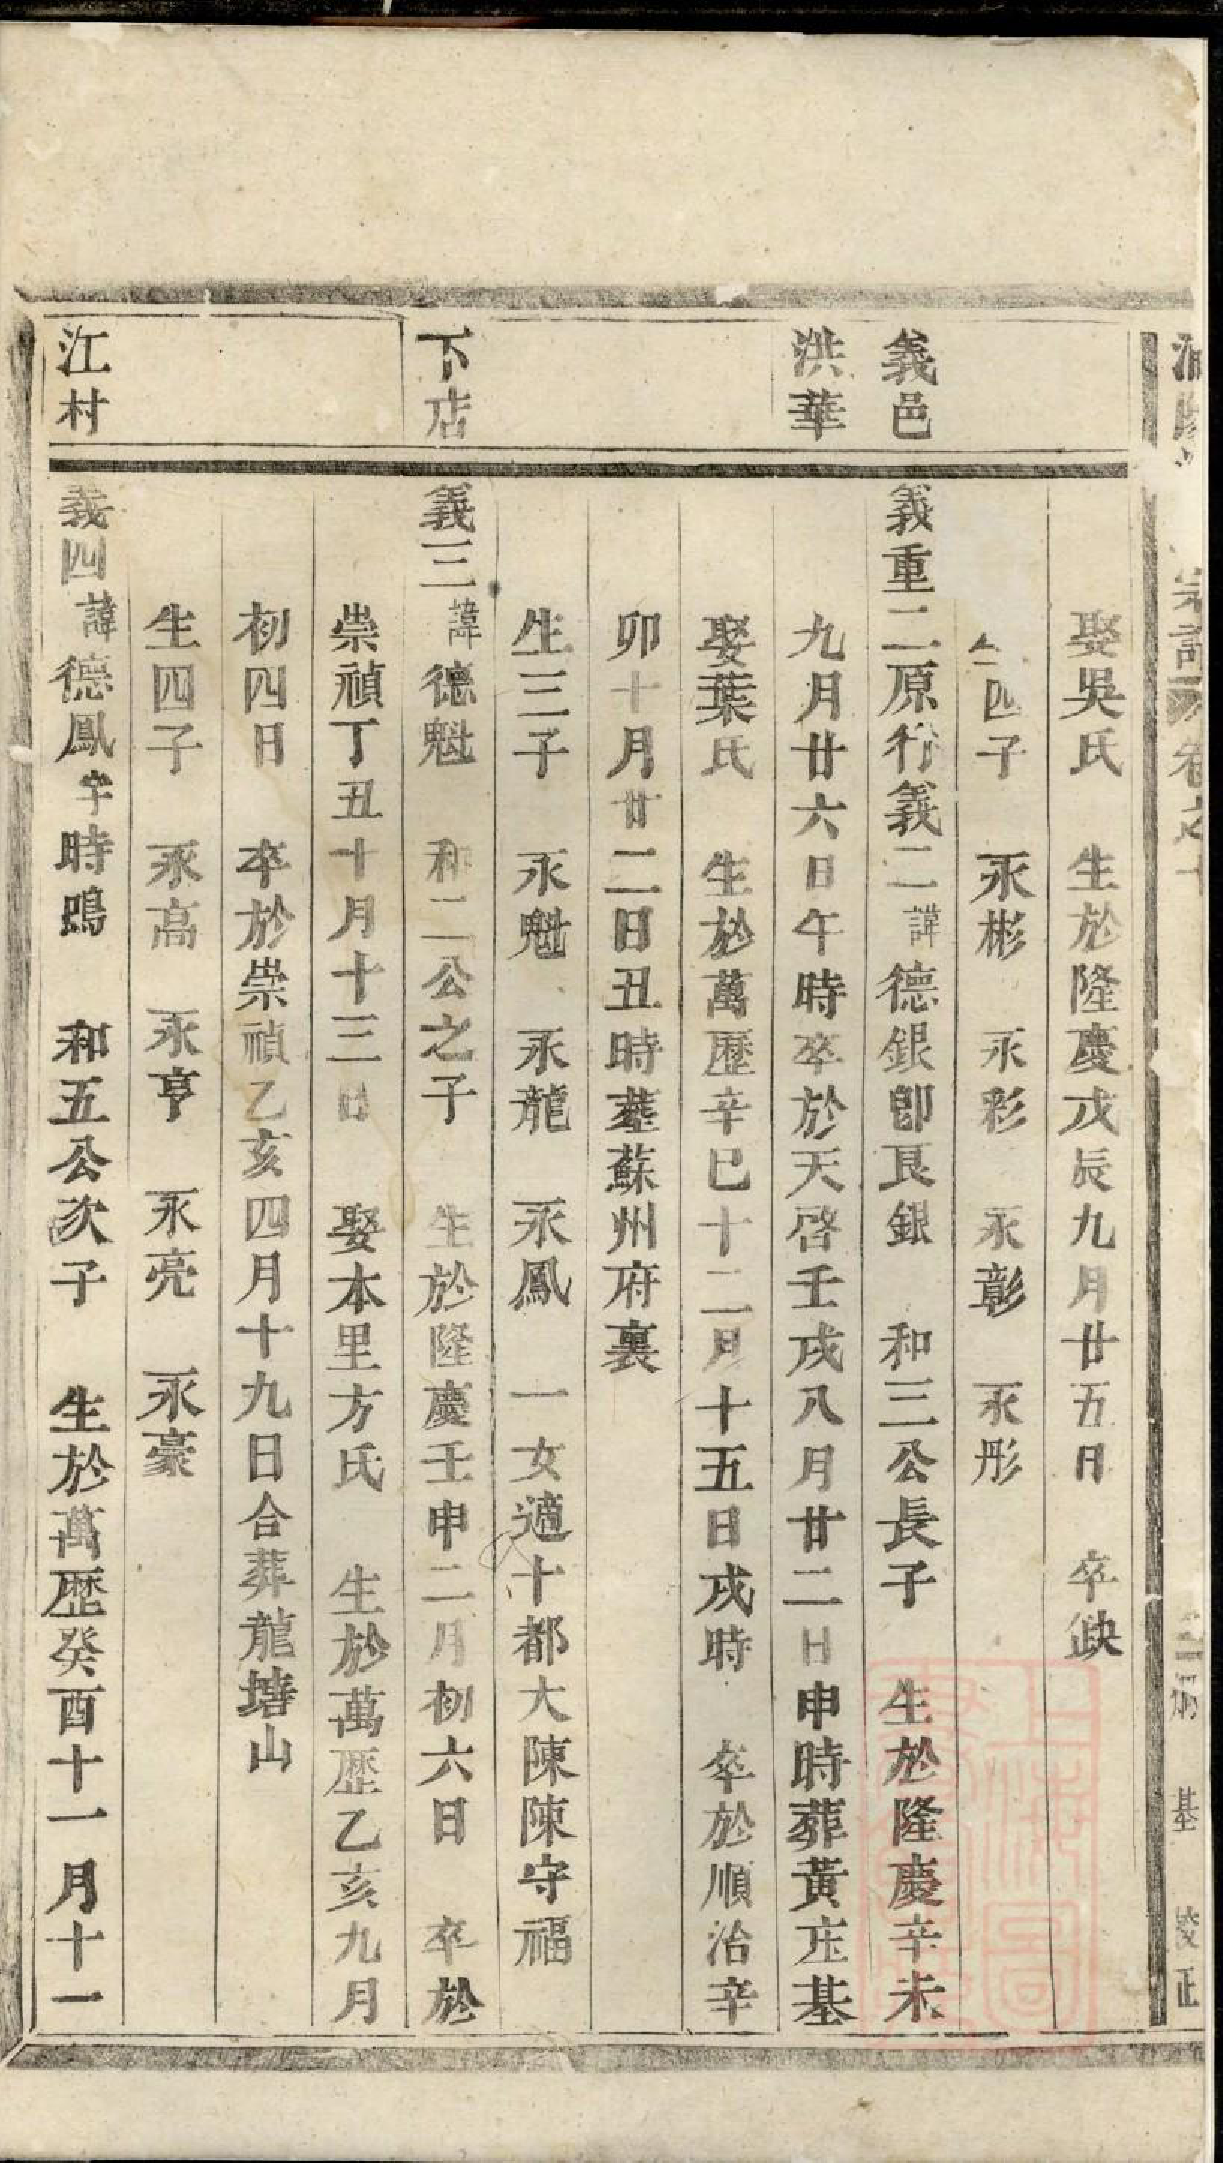 宗譜卷之十
基 校正
娶吳氏 生於隆慶戊辰九月廿五日 卒缺
生四子 永彬 永彩 永彰 永彤
義邑
義重二原行義二諱德銀卽艮銀 和三公長子 生於隆慶辛未
洪華
九月廿六日午時卒於天啓壬戌八月廿二日申時葬黃庄基
娶葉氏 生於萬歷辛巳十二月十五日戌時 卒於順治辛
卯十月廿二日丑時葬蘇州府裏
生三子 永魁 永龍 永鳳 一女適十都大陳陳守福
下店
義三諱德魁 和二公之子 生於隆慶壬申二月初六日 卒於
崇禎丁丑十月十三日 娶本里方氏 生於萬歷乙亥九月
初四日 卒於崇禎乙亥四月十九日合葬龍塘山
生四子 永高 永亨 永亮 永豪
江村
義四諱德鳳字時鳴 和五公次子 生於萬歷癸酉十一月十一